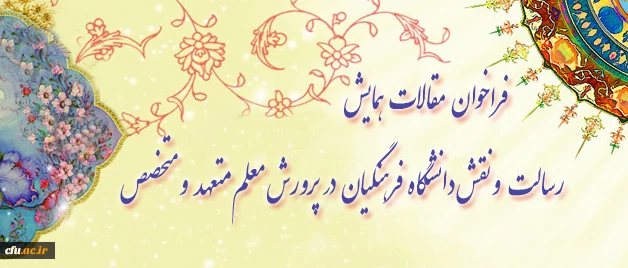 فراخوان مقالات همایش
رسالت و نقش دانشگاه فرهنگیان در پرورش معلم متعهد و متخصص
cfu.ac.ir